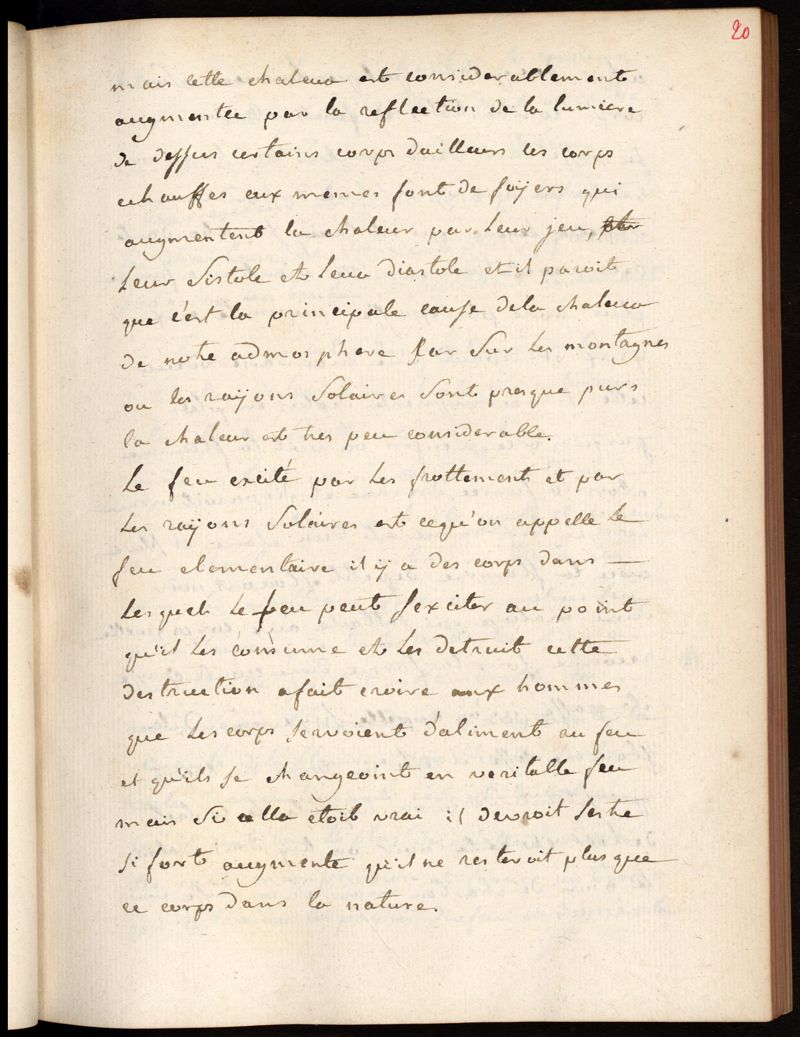 20
mais cette chaleur est considerablement
augmentee par la reflection de la lumiere
de dessus certains corps dailleurs les corps
echauffes eux memes font de foÿers qui
augmentent la chaleur par leur jeu,
leur Sistole et leur diastole et il paroit
que c'est la principale cause dela chaleur
de notre admosphere Car Sur les montagnes
ou les raÿons Solaires Sont presque purs
la chaleur est tres peu considerable.
Le feu excité par les frottements et par
Les raÿons Solaires est cequ'on appelle le
feu elementaire il ÿ a des corps dans —
Lesquels Le feu peut sexciter au point
qu'il Les consume et Les detruit cette
destruction afait croire aux hommes
que Les corps servoient d'aliment au feu
et qu'ils se changeoint en veritable feu
mais Si cella etoit vrai il devroit sestre
si fort augmente qu'il ne resteroit plus que
ce corps dans la nature.